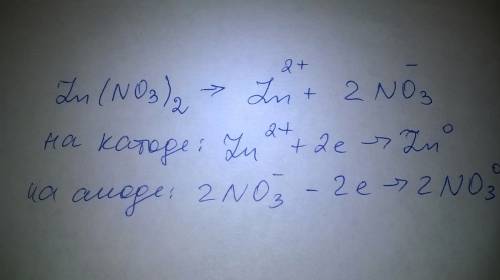 Zn(NO₃)₂ → Zn²⁺ + 2NO₃⁻
на катоде: Zn²⁺ + 2e → Zn⁰
на аноде: 2NO₃⁻ - 2e → 2NO₃⁰